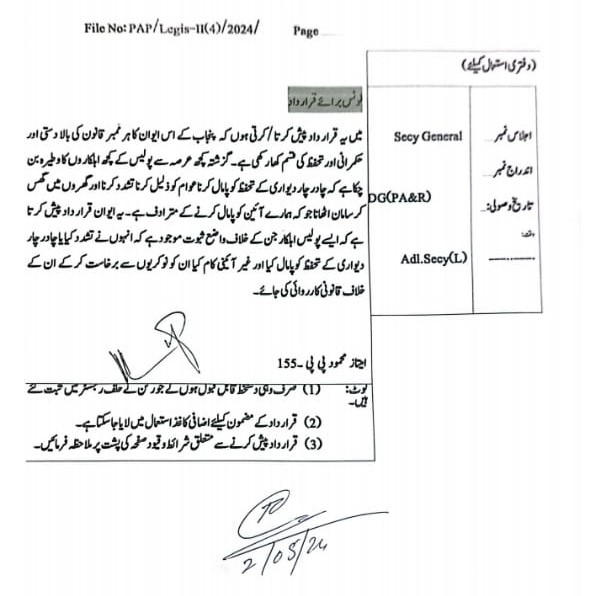 File No: PAP/Legis-11(4)/2024/ Page
(دفتری استعمال کیلئے)
نوٹس برائے قرارداد
میں یہ قرارداد پیش کرتا/کرتی ہوں کہ پنجاب کے اس ایوان کا ہر ممبر قانون کی بالادستی اور
حکمرانی اور تحفظ کی قسم کھا رکھی ہے۔ گزشتہ کچھ عرصہ سے پولیس کے کچھ اہلکاروں کا وطیرہ بن
چکا ہے کہ چادر چار دیواری کے تحفظ کو پامال کرنا عوام کو ذلیل کرنا تشدد کرنا اور گھروں میں گھس
کر سامان اٹھانا جو کہ ہمارے آئین کو پامال کرنے کے مترادف ہے۔ یہ ایوان قرارداد پیش کرتا
ہے کہ ایسے پولیس اہلکار جن کے خلاف واضح ثبوت موجود ہے کہ انہوں نے تشدد کیا یا چادر چار
دیواری کے تحفظ کو پامال کیا اور غیر آئینی کام کیا ان کو نوکریوں سے برخاست کر کے ان کے
خلاف قانونی کارروائی کی جائے۔
Secy General
DG(PA&R)
Adl.Secy(L)
اجلاس نمبر
اندراج نمبر
تاریخ وصولی:
وقت:
امتیاز محمود پی پی -155
نوٹ: (1) صرف وہی دستخط قابل قبول ہوں گے جو رکن نے حلف رجسٹر میں ثبت کئے
ہیں۔
(2) قرارداد کے مضمون کیلئے اضافی کاغذ استعمال میں لایا جاسکتا ہے۔
(3) قرارداد پیش کرنے سے متعلق شرائط و قیود صفحہ کی پشت پر ملاحظہ فرمائیں۔
2/05/24